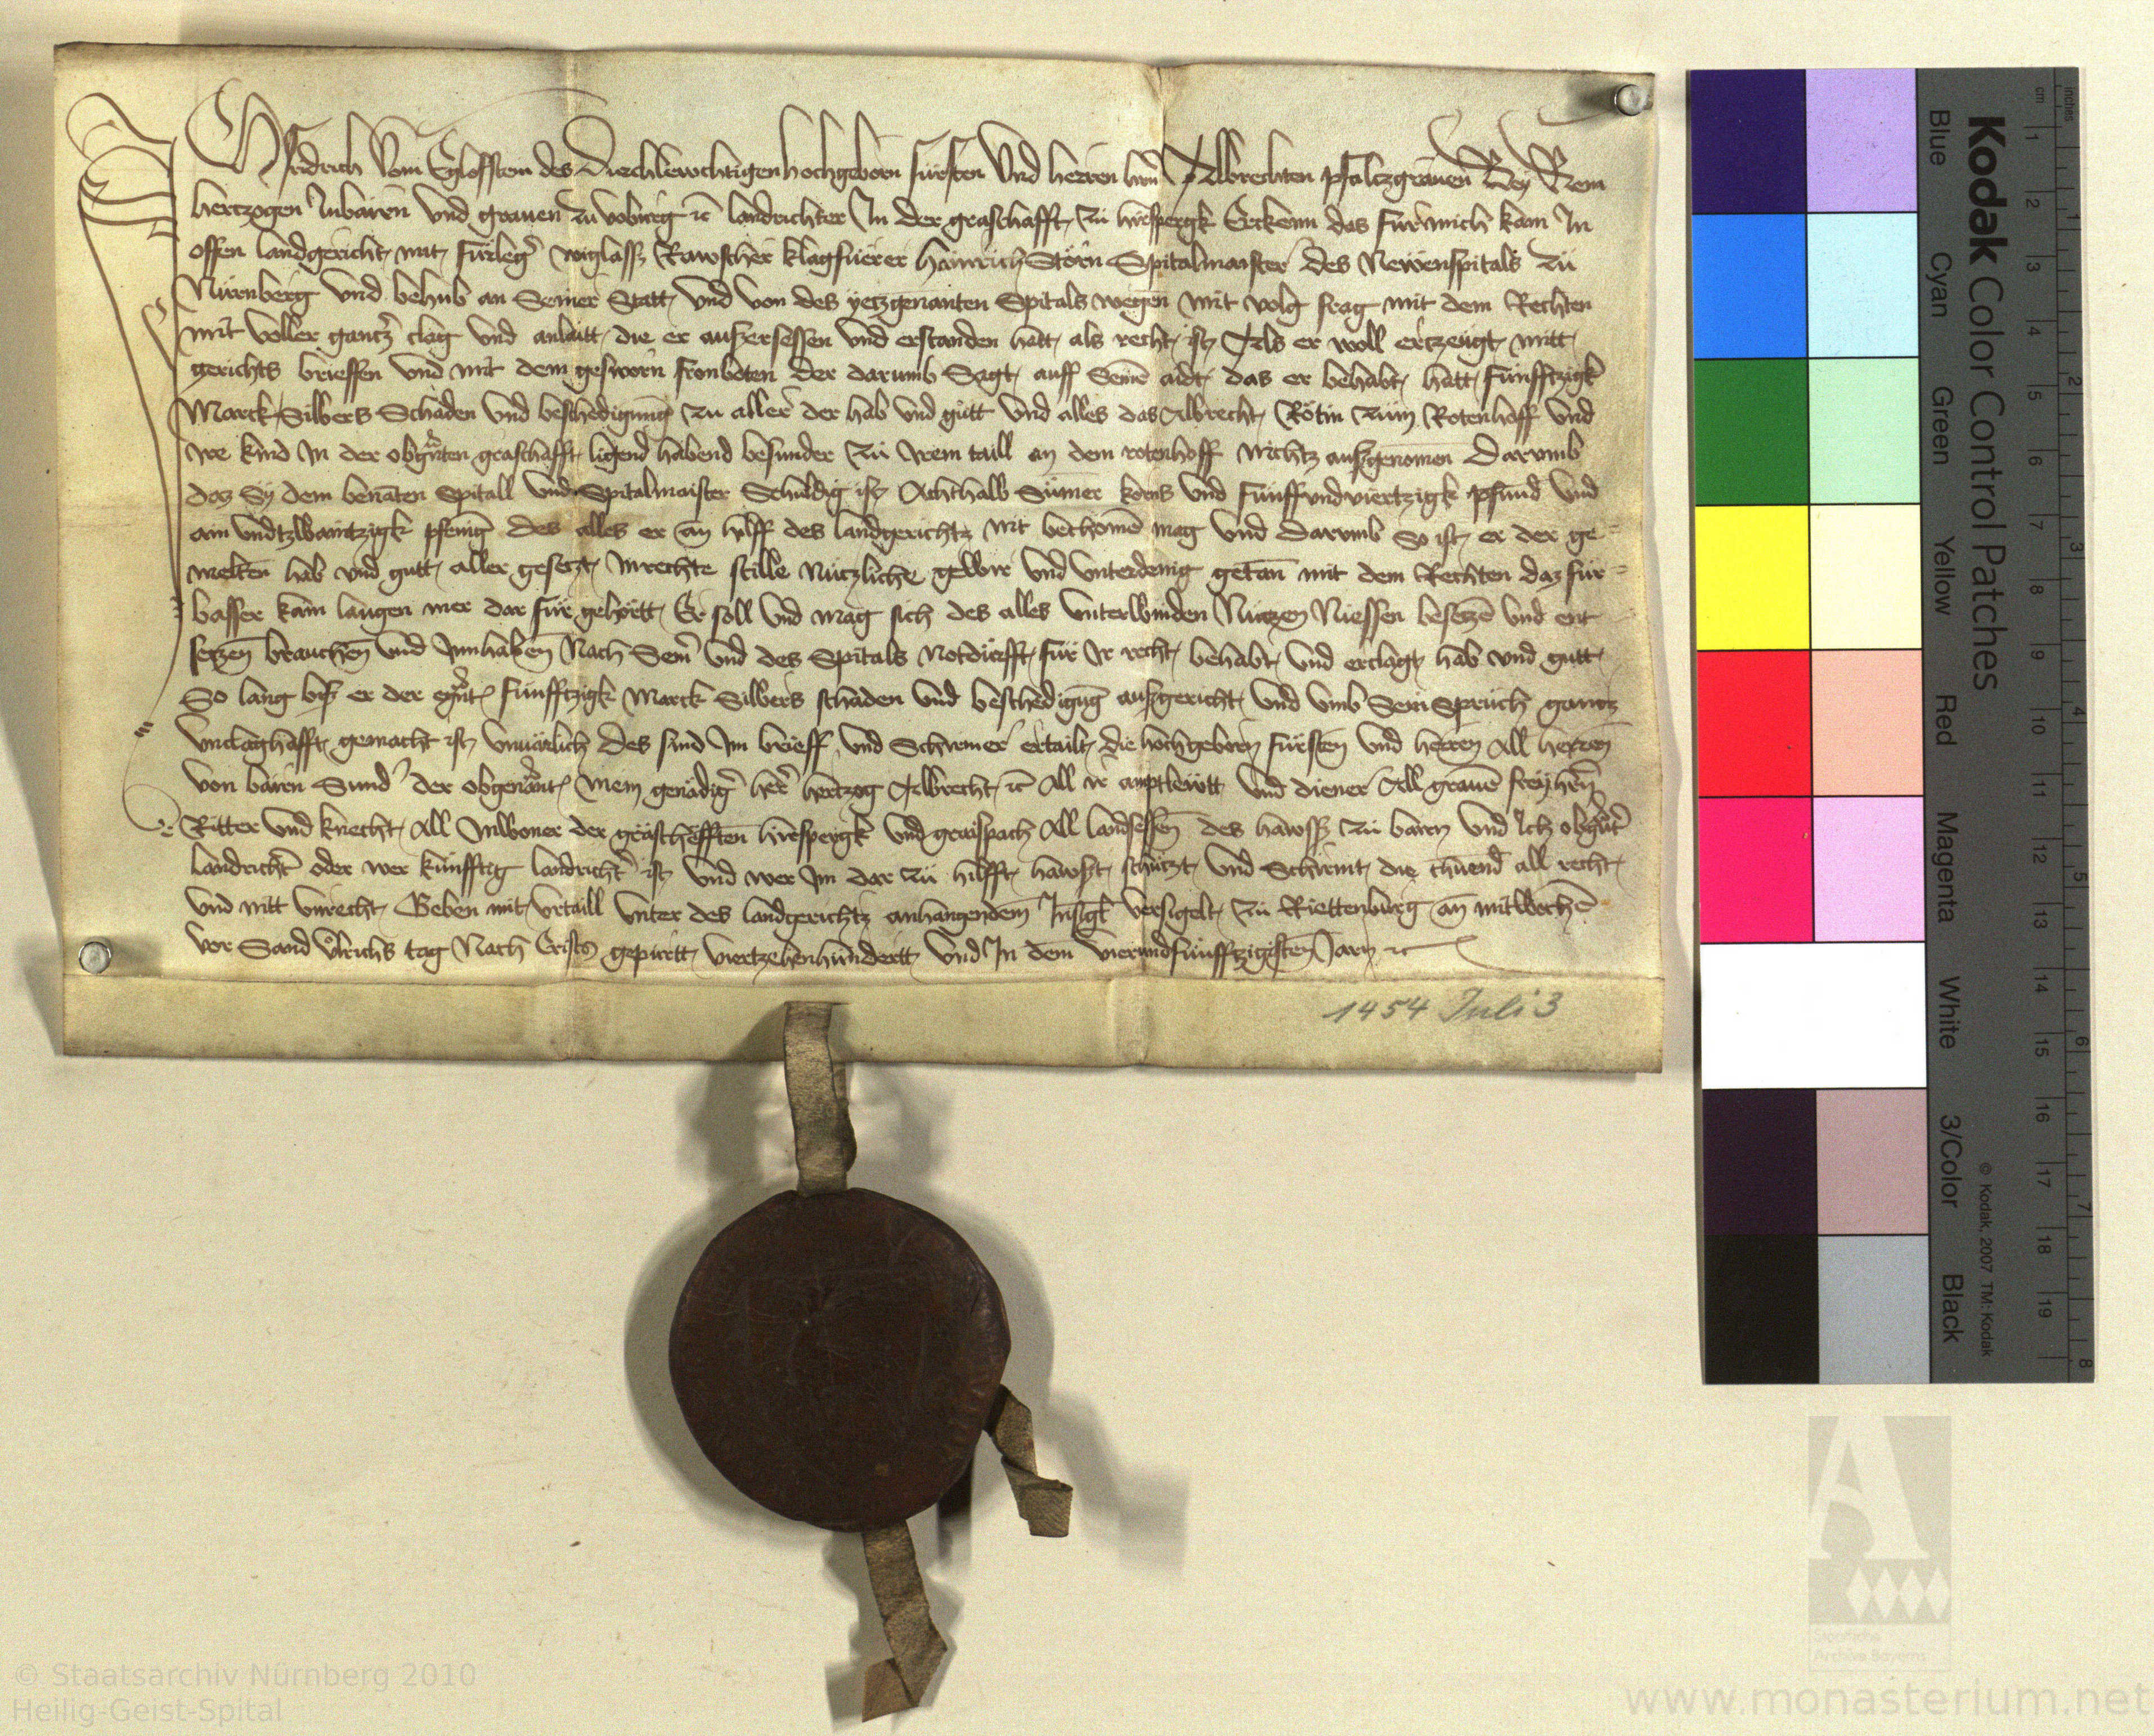 Ich Fridrich vom Egloffstein des Durchlewchtigen hochgeborn fürsten Vnd herren hern Albrechten pfaltzgrauen Bey Rein
hertzogen Inbairn vnd grauen zu voburg ꝛc landrichter In der graschafft zu hirspergk Erkenn das Für mich kam In
offen landgericht mit fürleger wiglasß Rawscher klagfuerer Hainrich Störn Spitalmaister des Newenspitals zü
Nürenberg vnd behub an Seiner Statt vnd von des yetzgenanten Spitals wegen mit volg frag mit dem Rechten
mit voller gantzer clag vnd anlaitt die er auszersessen vnd erstanden hatt als recht ist Als er woll ertzeugt mitt
gerichts brieffen vnd mit dem gesworn fronboten der darumb Sagt auff Seine aidt das er behabt hatt fünfftzigk
Marck Silbers Schäden vnd beschedigung zu aller der hab vnd gutt vnd alles das Albrecht Rötin zum Rotenhoff vnd
ire kind In der obgnten graschafft ligend habend besunder zu irem taill an dem rotenhoff nichtz ausgenomen Darumb
daz Sy dem benāten Spitall vnd Spitalmaister Schuldig ist Achthalb Sümer korns vnd fünffvndviertzigk pfund vnd
ain vndtzwaintzigk pfenig des alles er an hilff des landgerichtz nit bechomē mag vnd Darumb so ist er der ge-
melten hab vnd gutt aller gesetzt Inrechte stille Nutzliche gewir vnd vnterdenig getan mit dem Rechten daz für-
basser kain laugen mer dar für gehörtt Er soll vnd mag sich des alles vnterwinden Nutzen Niessen besetzē vnd ent
setzen brauchen vnd Innhaben Nach Sein vnd des Spitals Notdürfft für Ir recht behabt vnd erclagt hab vnd gutt
So lang bisz er der egnt fünfftzigk Marck Silbers schäden vnd beschedigūg ausgericht vnd vmb Sein Spruch gantz
vnclaghafft gemacht ist vnuärlich Des sind Im brieff vnd Schirmer ertailt die hochgeborn fürsten vnd herren All herren
von bairn Sunder der obgenāt mein genädiger her hertzog Albrecht ꝛc All ir amptlewtt vnd diener All grauē freyhern
Ritter vnd knecht All Inwoner der gräschefften hirspergk vnd graispach All landsessen des hawsß zu bairn vnd Ich obgnter
landrichter oder wer künfftig landrichter ist vnd wer Im dar zu hilfft hawszt schützt vnd Schirmt die thuend all recht
vnd nitt vnrecht Geben mit vrtaill vnter des landgerichtz anhangendem Insigl versigelt zu Riettenburg an mitwochē
vor Sand Vlrichs tag Nach Cristi gepürtt viertzehenhundertt vnd In dem vierundfünfftzigisten Jarn ꝛc
1454 Juli 3
Kodak Color Control Patches
Blue Cyan Green Yellow Red Magenta White 3/Color Black
© Kodak, 2007 TM: Kodak
cm 1 2 3 4 5 6 7 8 9 10 11 12 13 14 15 16 17 18 19
inches 1 2 3 4 5 6 7 8
A
Staatliche
Archive Bayerns
© Staatsarchiv Nürnberg 2010
Heilig-Geist-Spital
www.monasterium.net